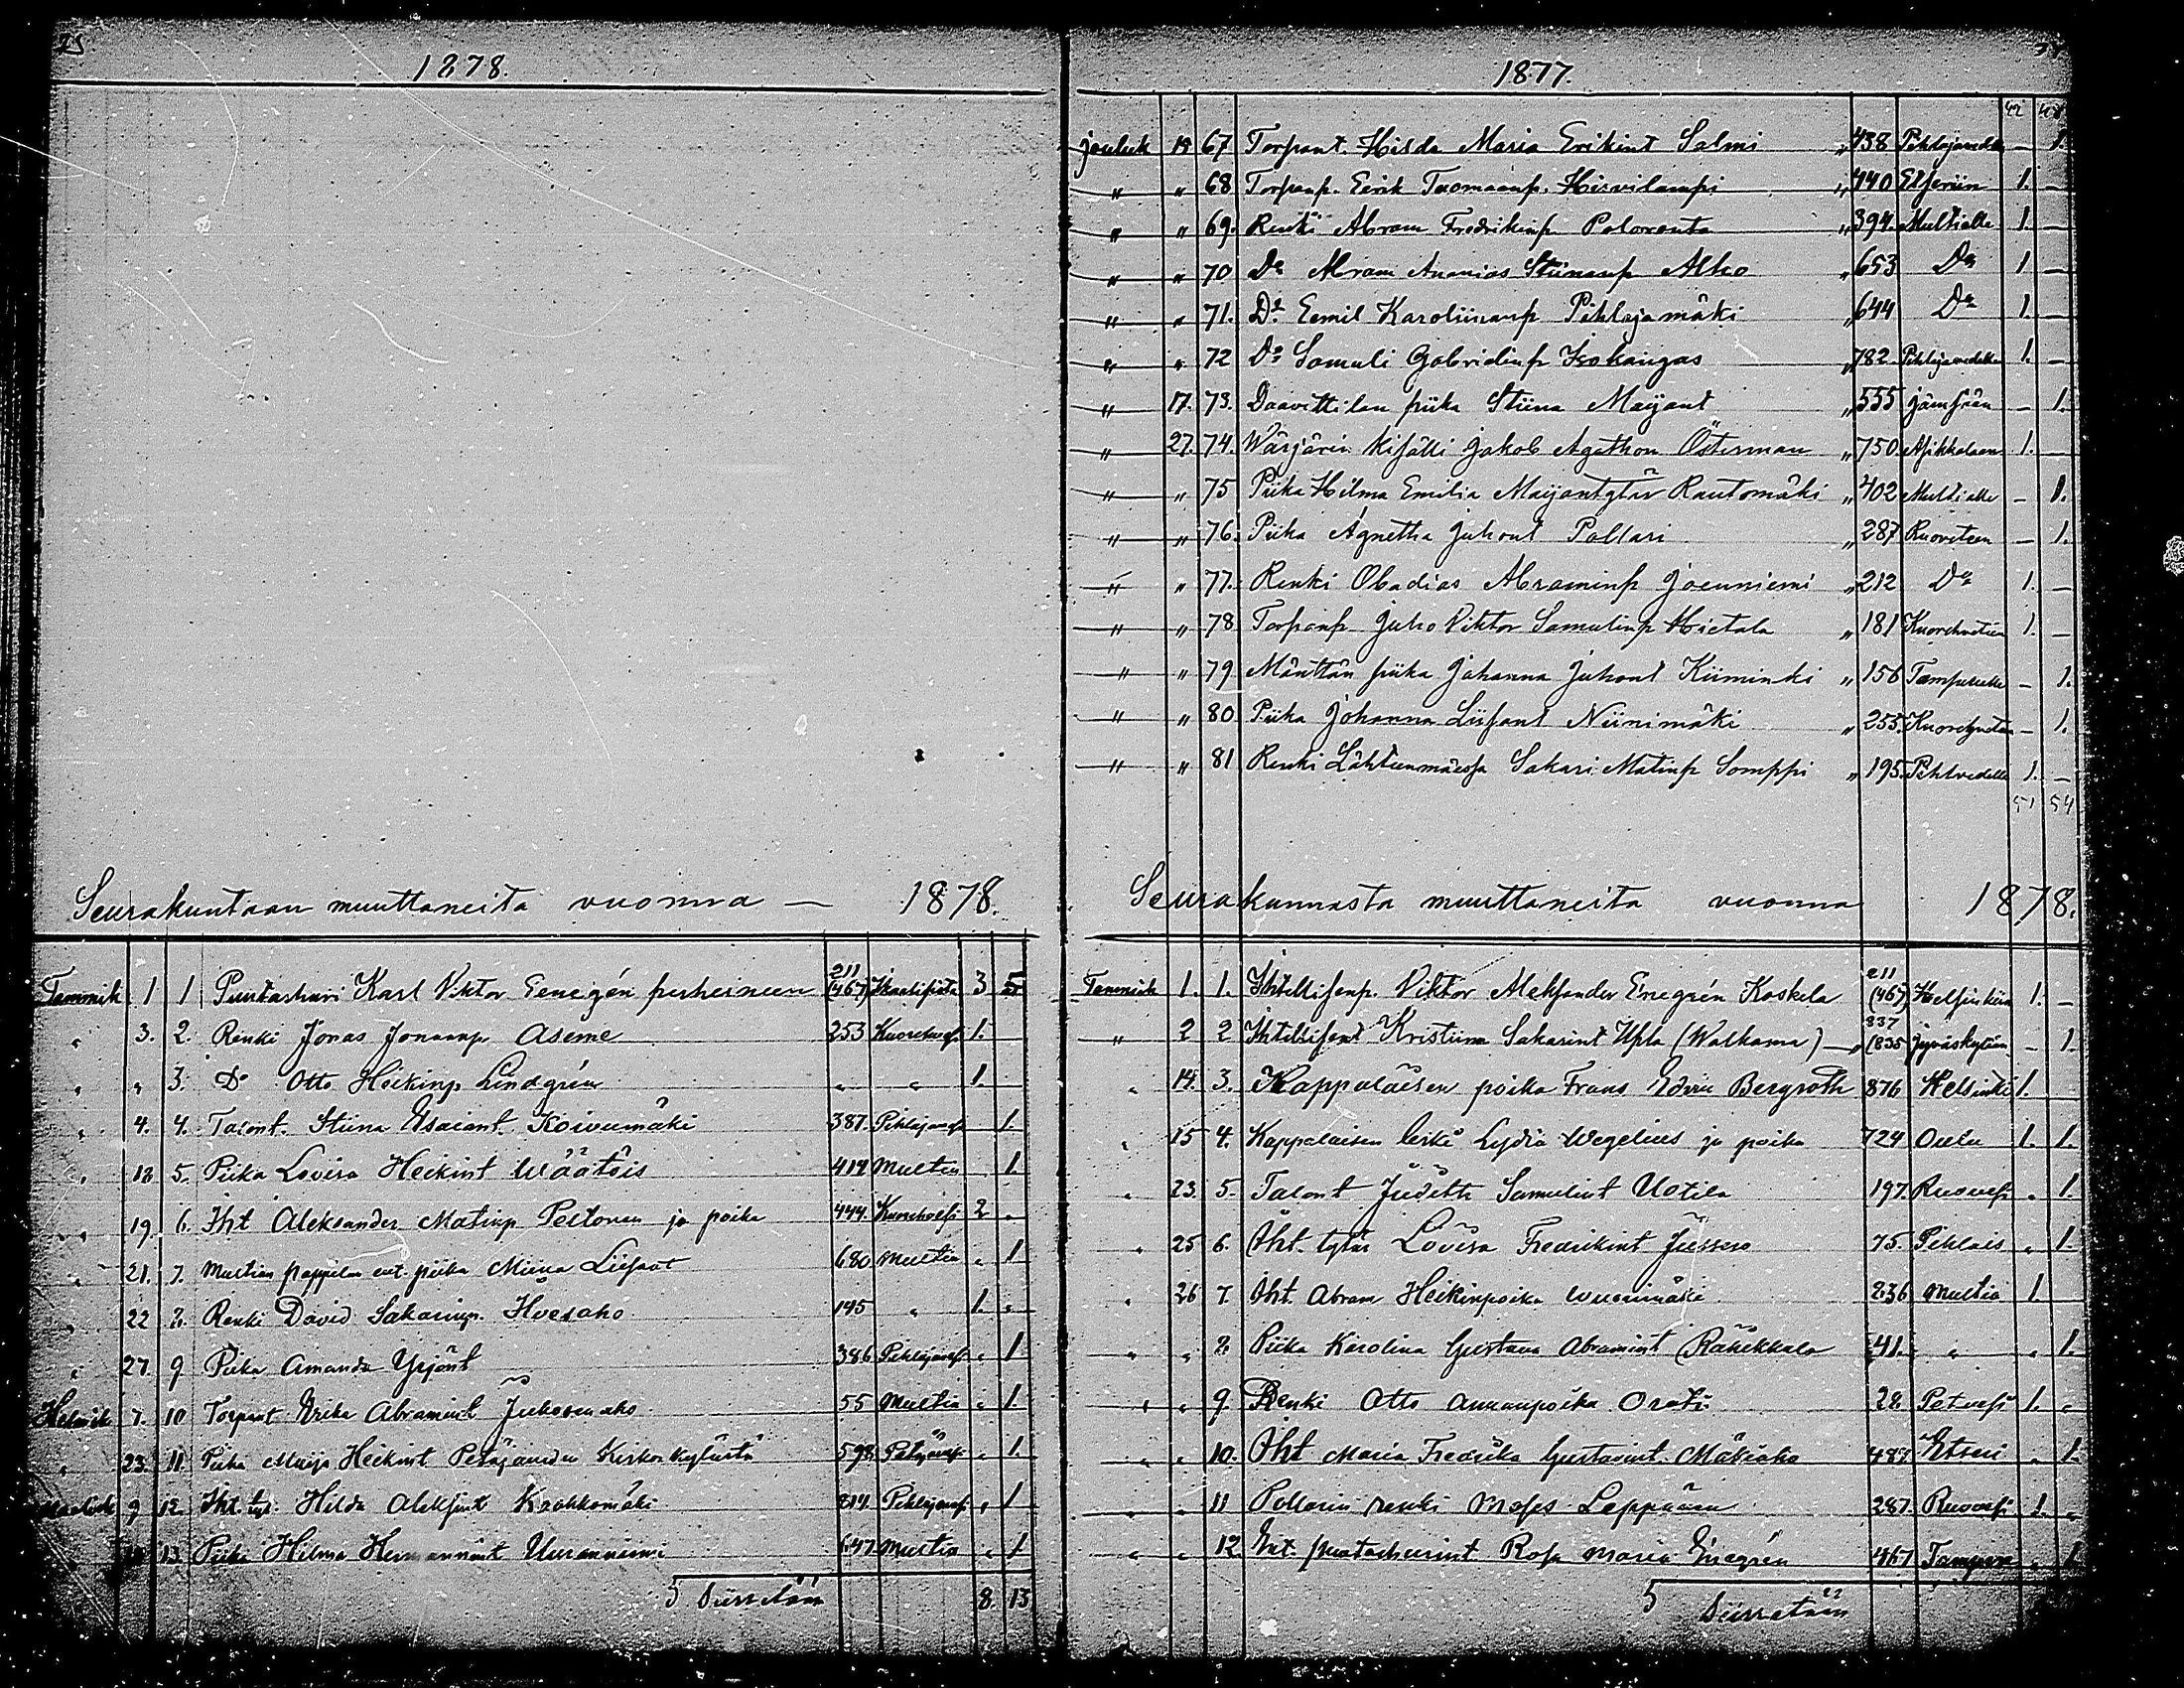 25
1878.
Seurakuntaan muuttaneita vuonna — 1878.
Tammik 1 1 Puutarhuri Karl Viktor Enegrén perheineen 211 (467) 3 5
" 3. 2. Renki Jonas Jonaanp. Aseme 253 Kuorehvesi 1.
" " 3. Do Otto Heikinp. Lindgrén " " 1.
" 4. 4. Talont. Stiina Esaiant. Koivumäki 387. Pihlajavesi 1.
" 18 5. Piika Lovisa Heikint Wäätäis 414 Multia 1.
" 19. 6. Iht Aleksander Matinp Peltonen ja poika 444. Kuorehvesi 2 "
" 21. 7. Multian pappilan ent. piika Miina Liisant 680 Multia " 1
" 22 8. Renki David Sakarinp. 145 " 1. "
" 27. 9 Piika Amanda Yrjönt 386 Pihlajavesi " 1
Helmik 7. 10 Torpant Erika Abramint Juhosenaho 55 Multia " 1.
" 23. 11. Piika Maija Heikint Petäjäveden Kirkonkylästä 598 Petäjävesi " 1.
Maalisk 9 12. Iht. tyt. Hilda Aleksint Kaakkomäki 814. Pihlajavesi " 1
" 13. Piika Hilma Hermannint Uuranniemi 647. Multia " 1
5 Siirretään 8 13
1877.
42 48
jouluk 15 67 Torpant. Hilda Maria Erikint Salmi " 438 Pihlajavedelle — 1.
" " 68 Torpanp. Eerik Tuomaanp. Hirvilampi " 440 Etseriin 1. —
" " 69. Renki Abram Fredrikinp Poloranta " 394. Multialle 1. —
" " 70 Do Abram Ananias Stiinanp Alho " 653 Do 1 —
" " 71. Do Eemil Karoliinanp Pihlajamäki " 644 Do 1. —
" " 72 Do Samuli Gabrielinp Isokangas " 782 Pihlajavedelle 1. —
" 17. 73. Daavittilan piika Stiina Maijant " 555 Jämsään — 1.
" 27. 74. Wärjärin kisälli Jakob Agathon Österman " 750 Asikkalaan 1.
" " 75 Piika Hilma Emilia Maijantytär Rautomäki " 402 Multialle — 1.
" " 76. Piika Agnetha Juhont Pollari " 287 Ruoveteen — 1.
" " 77. Renki Obadias Abraminp Joenniemi " 212 Do 1. —
" " 78 Torpanp Juho Viktor Samulinp Hietala " 181 Kuoreheteen 1. —
" " 79 Mänttän piika Johanna Juhont Kiiminki " 156 Tampereelle — 1.
" " 80 Piika Johanna Liisant Niinimäki " 255. Kuorehveteen — 1.
" " 81 Renki Lähteenmäessä Sakari Matinp Somppi " 195. Pihlvedelle 1. —
51 54
Seurakunnasta muuttaneita vuonna 1878.
Tammik 1. 1. Ihtellisenp. Viktor Aleksander Enegrén Koskela 211 (467) Helsinkiin 1. —
" 2 2 Ihtellisent Kristiina Sakarint Uhla (Walkama) — " 837 (835 Jyväskylään — 1.
" 14. 3. Kappalaisen poika Frans Edvin Bergroth 876 Helsinki 1.
" 15 4. Kappalaisen leski Lydia Wegelius ja poika 724 Oulu 1. 1.
" 23. 5. Talont Juditth Samulint Uotila 197. Ruovesi " 1.
" 25 6. Iht. tytär Lovisa Fredrikint 75. Pihlais " 1.
" 26 7. Iht. Abram Heikinpoika Wuorimäki 236 Multia 1.
" " 8. Piika Karolina Gustava Abramint Rähikkala 41. " " 1.
" " 9. Renki Otto Annanpoika 28 Petvesi 1. "
" " 10. Iht Maria Fredrika Gustavint. Mäkiaho 487 Etseri " 1.
" " 11 Pollarin renki Moses Leppänen 287. Ruovesi 1. "
" " 12 Ent. puutarhurint Rosa Maria Enegrén 467 Tampere " 1
5 Siirretään